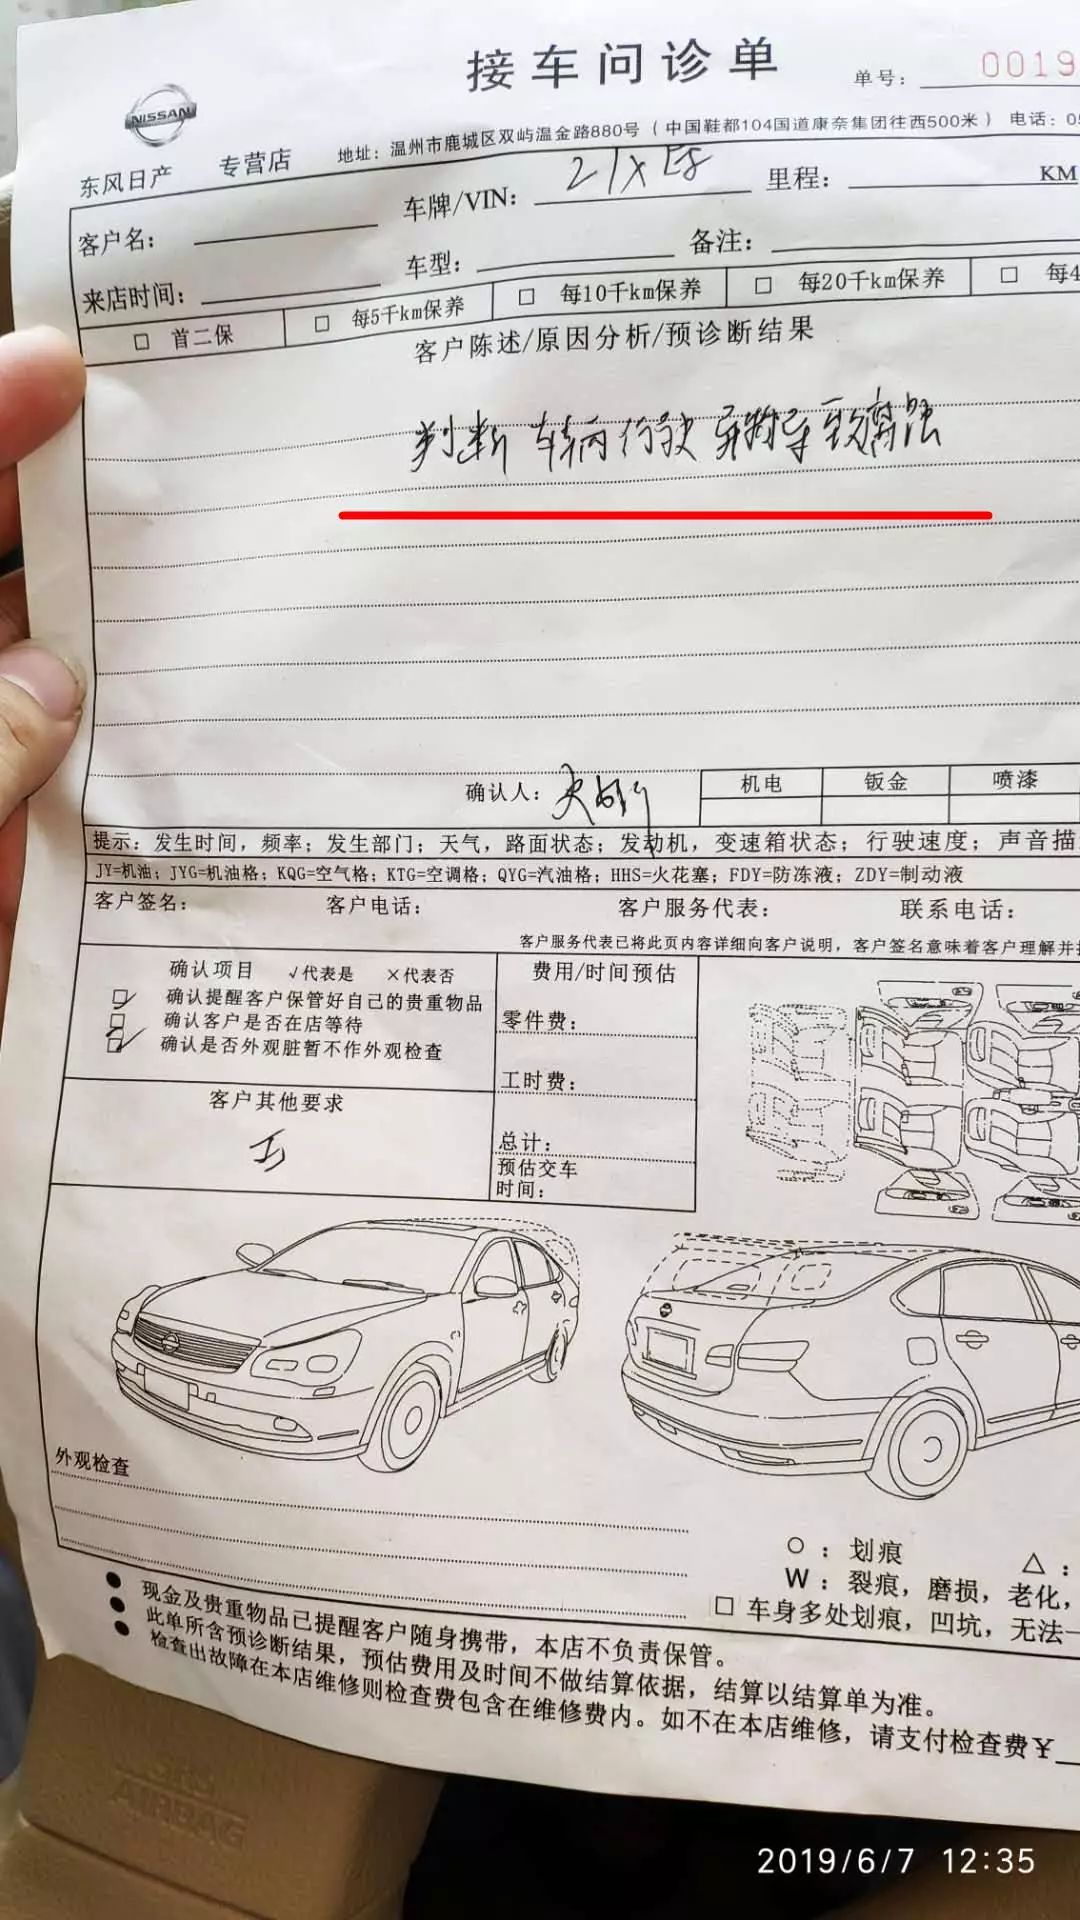 接车问诊单
单号：0019
NISSAN
东风日产 专营店 地址：温州市鹿城区双屿温金路880号（中国鞋都104国道康奈集团往西500米） 电话：05
客户名： 车牌/VIN： 里程： KM
来店时间： 车型： 备注：
□ 首二保 □ 每5千km保养 □ 每10千km保养 □ 每20千km保养 □ 每4
客户陈述/原因分析/预诊断结果
判断车辆行驶异物导致腐蚀
确认人： 机电 钣金 喷漆
提示：发生时间，频率；发生部门；天气，路面状态；发动机，变速箱状态；行驶速度；声音描
JY=机油；JYG=机油格；KQG=空气格；KTG=空调格；QYG=汽油格；HHS=火花塞；FDY=防冻液；ZDY=制动液
客户签名： 客户电话： 客户服务代表： 联系电话：
客户服务代表已将此页内容详细向客户说明，客户签名意味着客户理解并
确认项目 √代表是 ×代表否
确认提醒客户保管好自己的贵重物品
确认客户是否在店等待
确认是否外观脏暂不作外观检查
客户其他要求
费用/时间预估
零件费：
工时费：
总计：
预估交车
时间：
外观检查
○：划痕 △：
W：裂痕，磨损，老化，
□ 车身多处划痕，凹坑，无法一
● 现金及贵重物品已提醒客户随身携带，本店不负责保管。
● 此单所含预诊断结果，预估费用及时间不做结算依据，结算以结算单为准。
● 检查出故障在本店维修则检查费包含在维修费内。如不在本店维修，请支付检查费¥
AIRBAG
2019/6/7 12:35